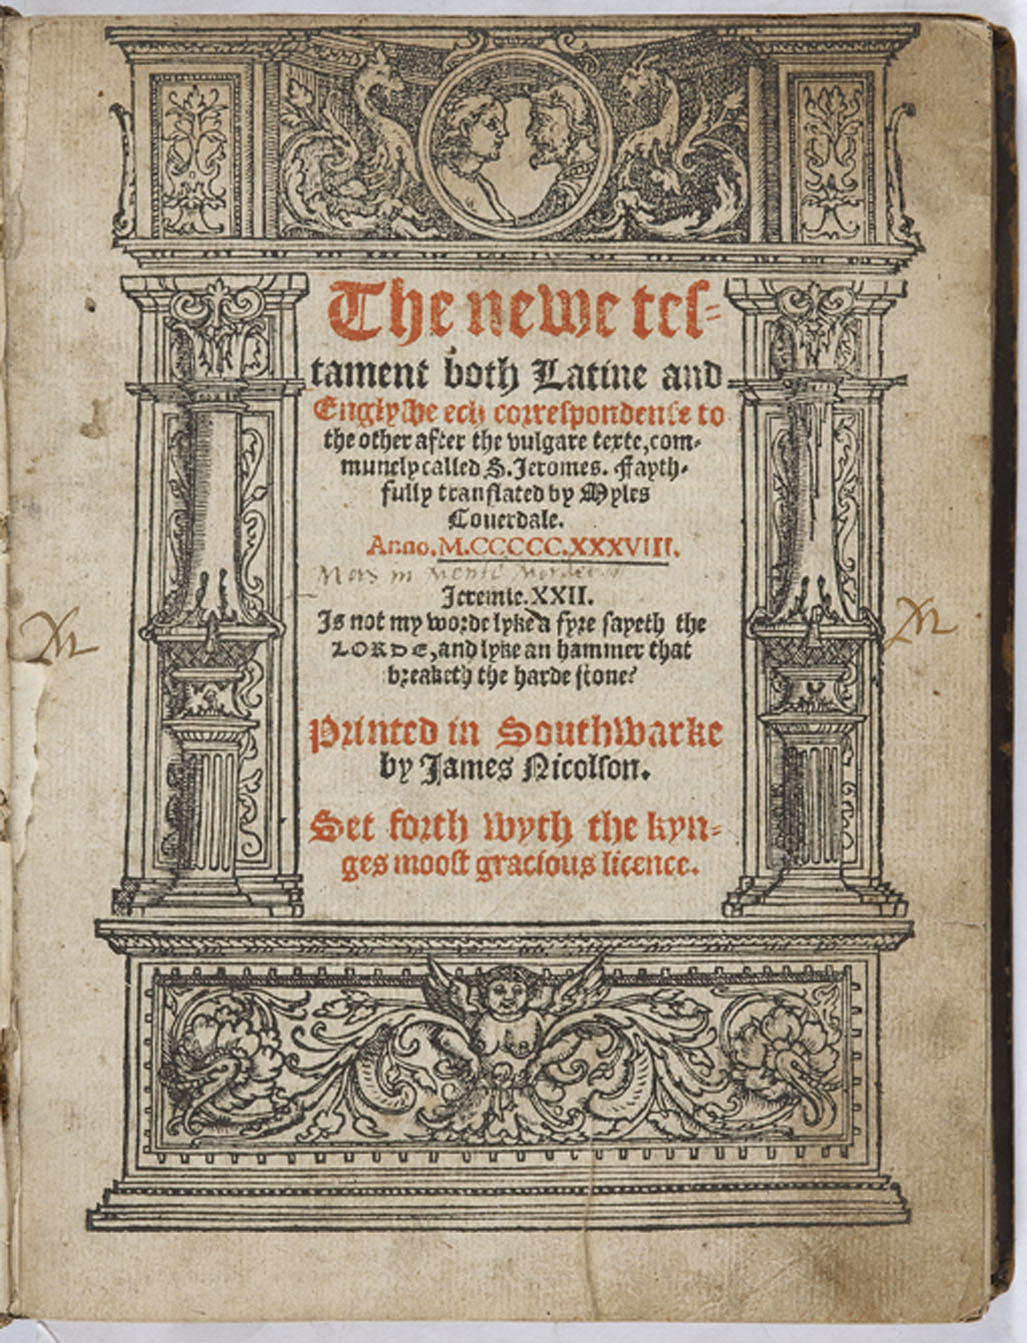 The newe tes-
tament both Latine and
Englyshe ech correspondente to
the other after the vulgare texte, com-
munely called S. Jeromes. Fayth-
fully translated by Myles
Couerdale.
Anno. M.CCCCC.XXXVIII.
Jeremie. XXII.
Is not my worde lyke a fyre sayeth the
LORDE, and lyke an hammer that
breaketh the harde stone?
Printed in Southwarke
by James Nicolson.
Set forth wyth the kyn-
ges moost gracious licence.